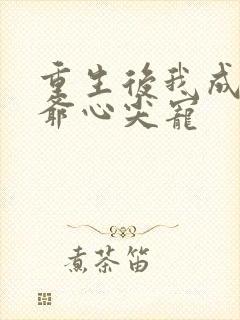 重生後我成
爺心尖寵
煮茶笛